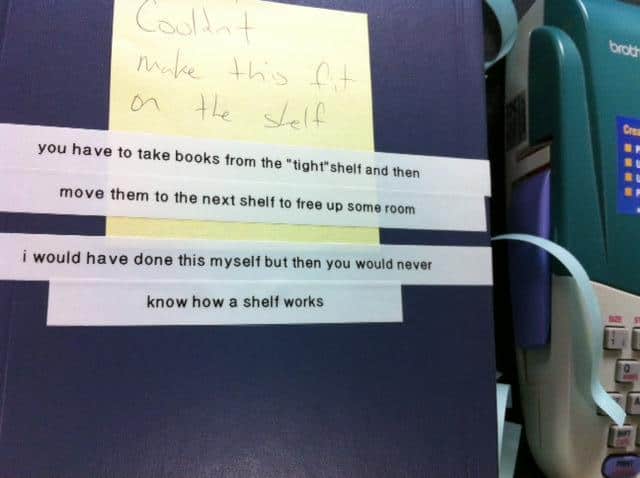 Couldn't
make this fit
on the shelf
you have to take books from the "tight"shelf and then
move them to the next shelf to free up some room
i would have done this myself but then you would never
know how a shelf works
SIZE